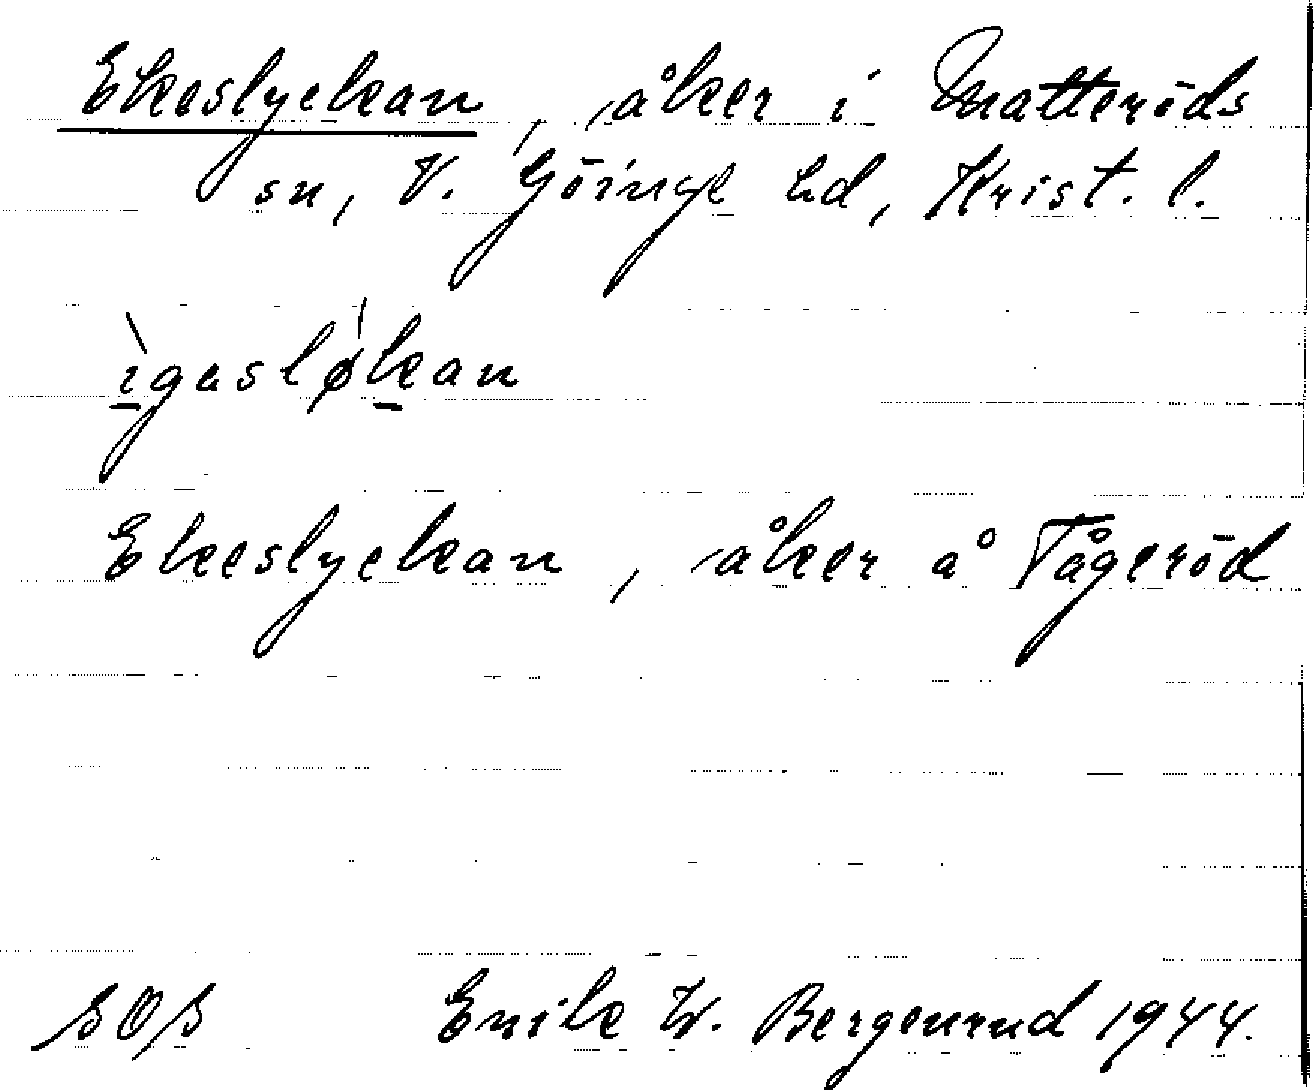 Ekeslyckan, åker i Matteröds
sn, V. Göinge hd, Krist. l.
ìgasløkan
Ekeslyckan, åker å Tågeröd
SOS Erik W. Bergenrud 1944.